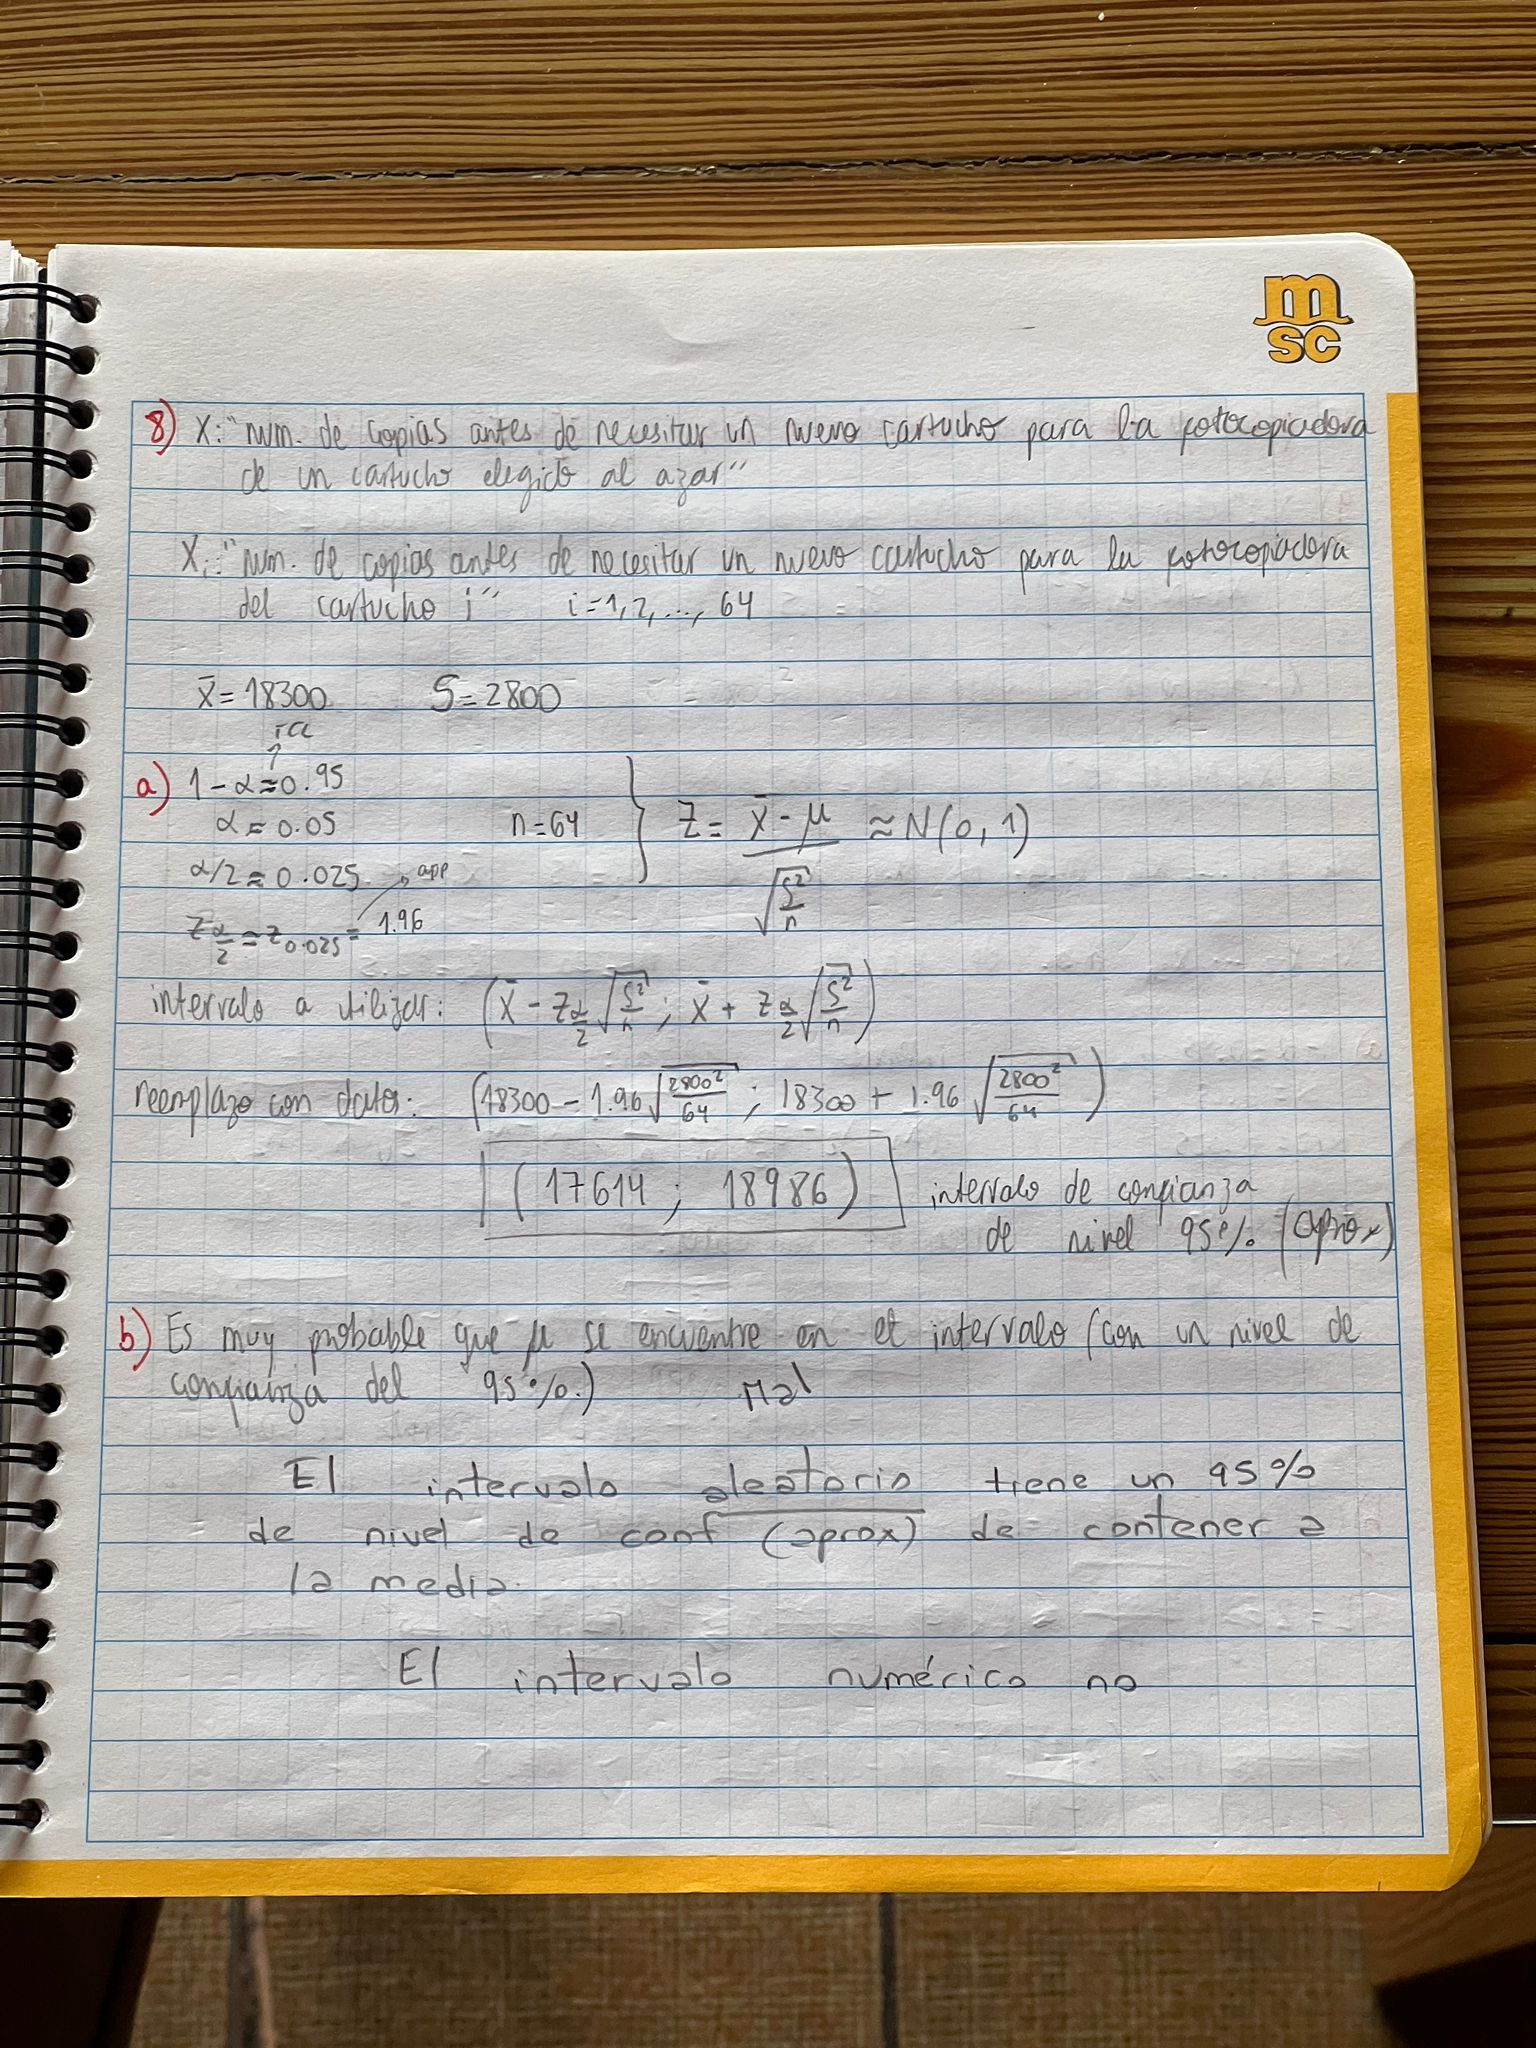 msc
8) X: "num. de copias antes de necesitar un nuevo cartucho para la fotocopiadora
de un cartucho elegido al azar"
Xi: "num. de copias antes de necesitar un nuevo cartucho para la fotocopiadora
del cartucho i" i=1,2,..., 64
x̄ = 18300 S = 2800
TCL
↑
a) 1 - α ≈ 0.95
α ≈ 0.05 n=64 } Z = (x̄ - μ) / √(S²/n) ≈ N(0,1)
α/2 ≈ 0.025 → app
z α/2 = z 0.025 = 1.96
intervalo a utilizar: (x̄ - z α/2 √(S²/n) ; x̄ + z α/2 √(S²/n))
reemplazo con datos: (18300 - 1.96 √(2800²/64) ; 18300 + 1.96 √(2800²/64))
(17614 ; 18986) intervalo de confianza
de nivel 95% (aprox)
b) Es muy probable que μ se encuentre en el intervalo (con un nivel de
confianza del 95%.) Mal
El intervalo aleatorio tiene un 95%
de nivel de conf (aprox) de contener a
la media.
El intervalo numérico no